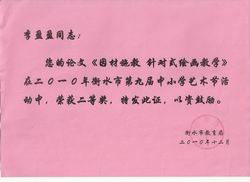 李盈盈同志：
您的论文《因材施教 针对式绘画教学》
在二０一０年衡水市第九届中小学艺术节活
动中，荣获二等奖，特发此证，以资鼓励。
衡水市教育局
二０一０年十二月